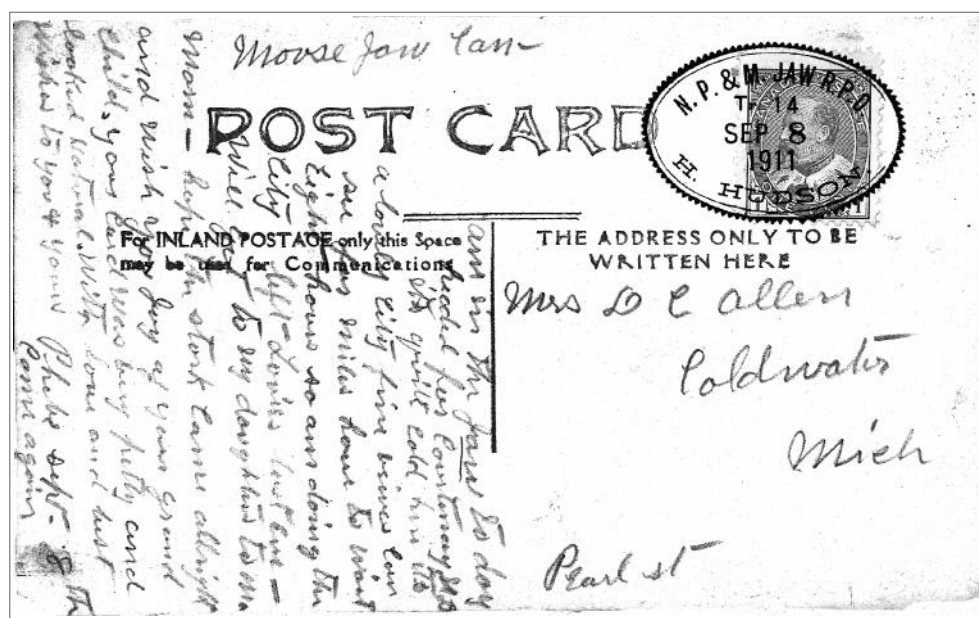 Moose Jaw Can-
POST CARD
N. P. & M. JAW R.P.O.
Tr 14
SEP 8
1911
H. HUDSON
For INLAND POSTAGE only this Space
may be used for Communications
THE ADDRESS ONLY TO BE
WRITTEN HERE
Mrs D C Allen
Coldwater
Mich
Pearl st
am in the Jaw to day
headed for
its quite cold here its
a lovely City fine views can
see for miles have to wait
Eight hours so am doing the
City left Louise last eve-
Will to my daughters to
Morn- hope the stork came allright
and wish you Joy of your grand
child. your Card was very pretty and
looked natural. with love and best
wishes to you & yours Phebe sept- 8th
Come again